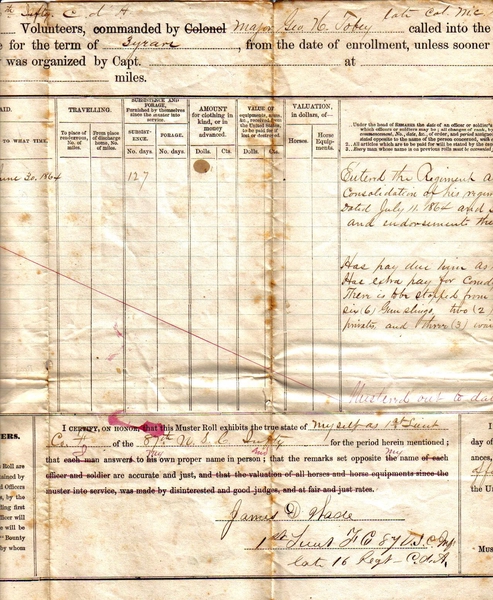 Infty C. d'A
Volunteers, commanded by Colonel Major Geo N. Tobey late Col. called into the
for the term of 3 years, from the date of enrollment, unless sooner
was organized by Capt. at
miles.
AID.
TO WHAT TIME.
TRAVELLING.
To place of rendezvous, No. of miles.
From place of discharge home, No. of miles.
SUBSISTENCE AND FORAGE,
Furnished by themselves since the muster into service.
SUBSISTENCE.
FORAGE.
No. days.
No. days.
AMOUNT
for clothing in kind, or in money advanced.
Dolls. Cts.
VALUE OF
equipments, arms, &c., received from the United States, to be paid for if lost or destroyed.
Dolls. Cts.
VALUATION,
in dollars, of—
Horses.
Horse Equipments.
Under the head of REMARKS the date of an officer or soldier's
which officers or soldiers may be; all changes of rank, by
commencement, No., date, &c., of order, and period assigned
2. All articles which are to be paid for will be stated by the
3. Every man whose name is on previous rolls must be
June 30. 1864
127
Consolidation of his regim
Dated July 11. 1864 and
and endorsements the
Has pay due him as
Has extra pay for Comd
There is to be stopped from
six (6) Gun slings, two (2)
private, and three (3)
Mustered out to da
I CERTIFY, ON HONOR, that this Muster Roll exhibits the true state of myself as 1st Lieut
of the 87th U. S. C. Infty for the period herein mentioned;
that each man answers to his own proper name in person; that the remarks set opposite the name of each
My my My
officer and soldier are accurate and just, and that the valuation of all horses and horse equipments since the
muster into service, was made by disinterested and good judges, and at fair and just rates.
James D Wade
1st Lieut F C 87 U.S.C. Inf
late 16 Regt - C.d.A.
ERS.
Roll are
led and
Officers
s, by the
lling first
fficer will
e will be
"Bounty
by whom
day of
ances,
the Un
MUS